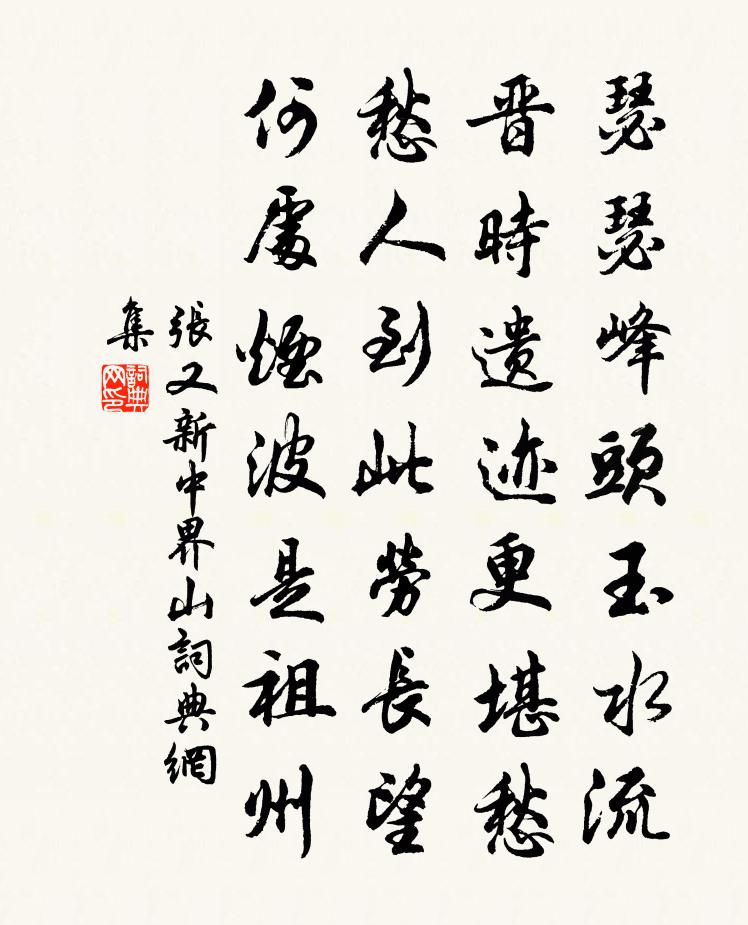 瑟瑟峰頭玉水流
晋時遗迹更堪愁
愁人到此勞長望
何處煙波是祖州
張又新中界山詞典網
集
詞典网印